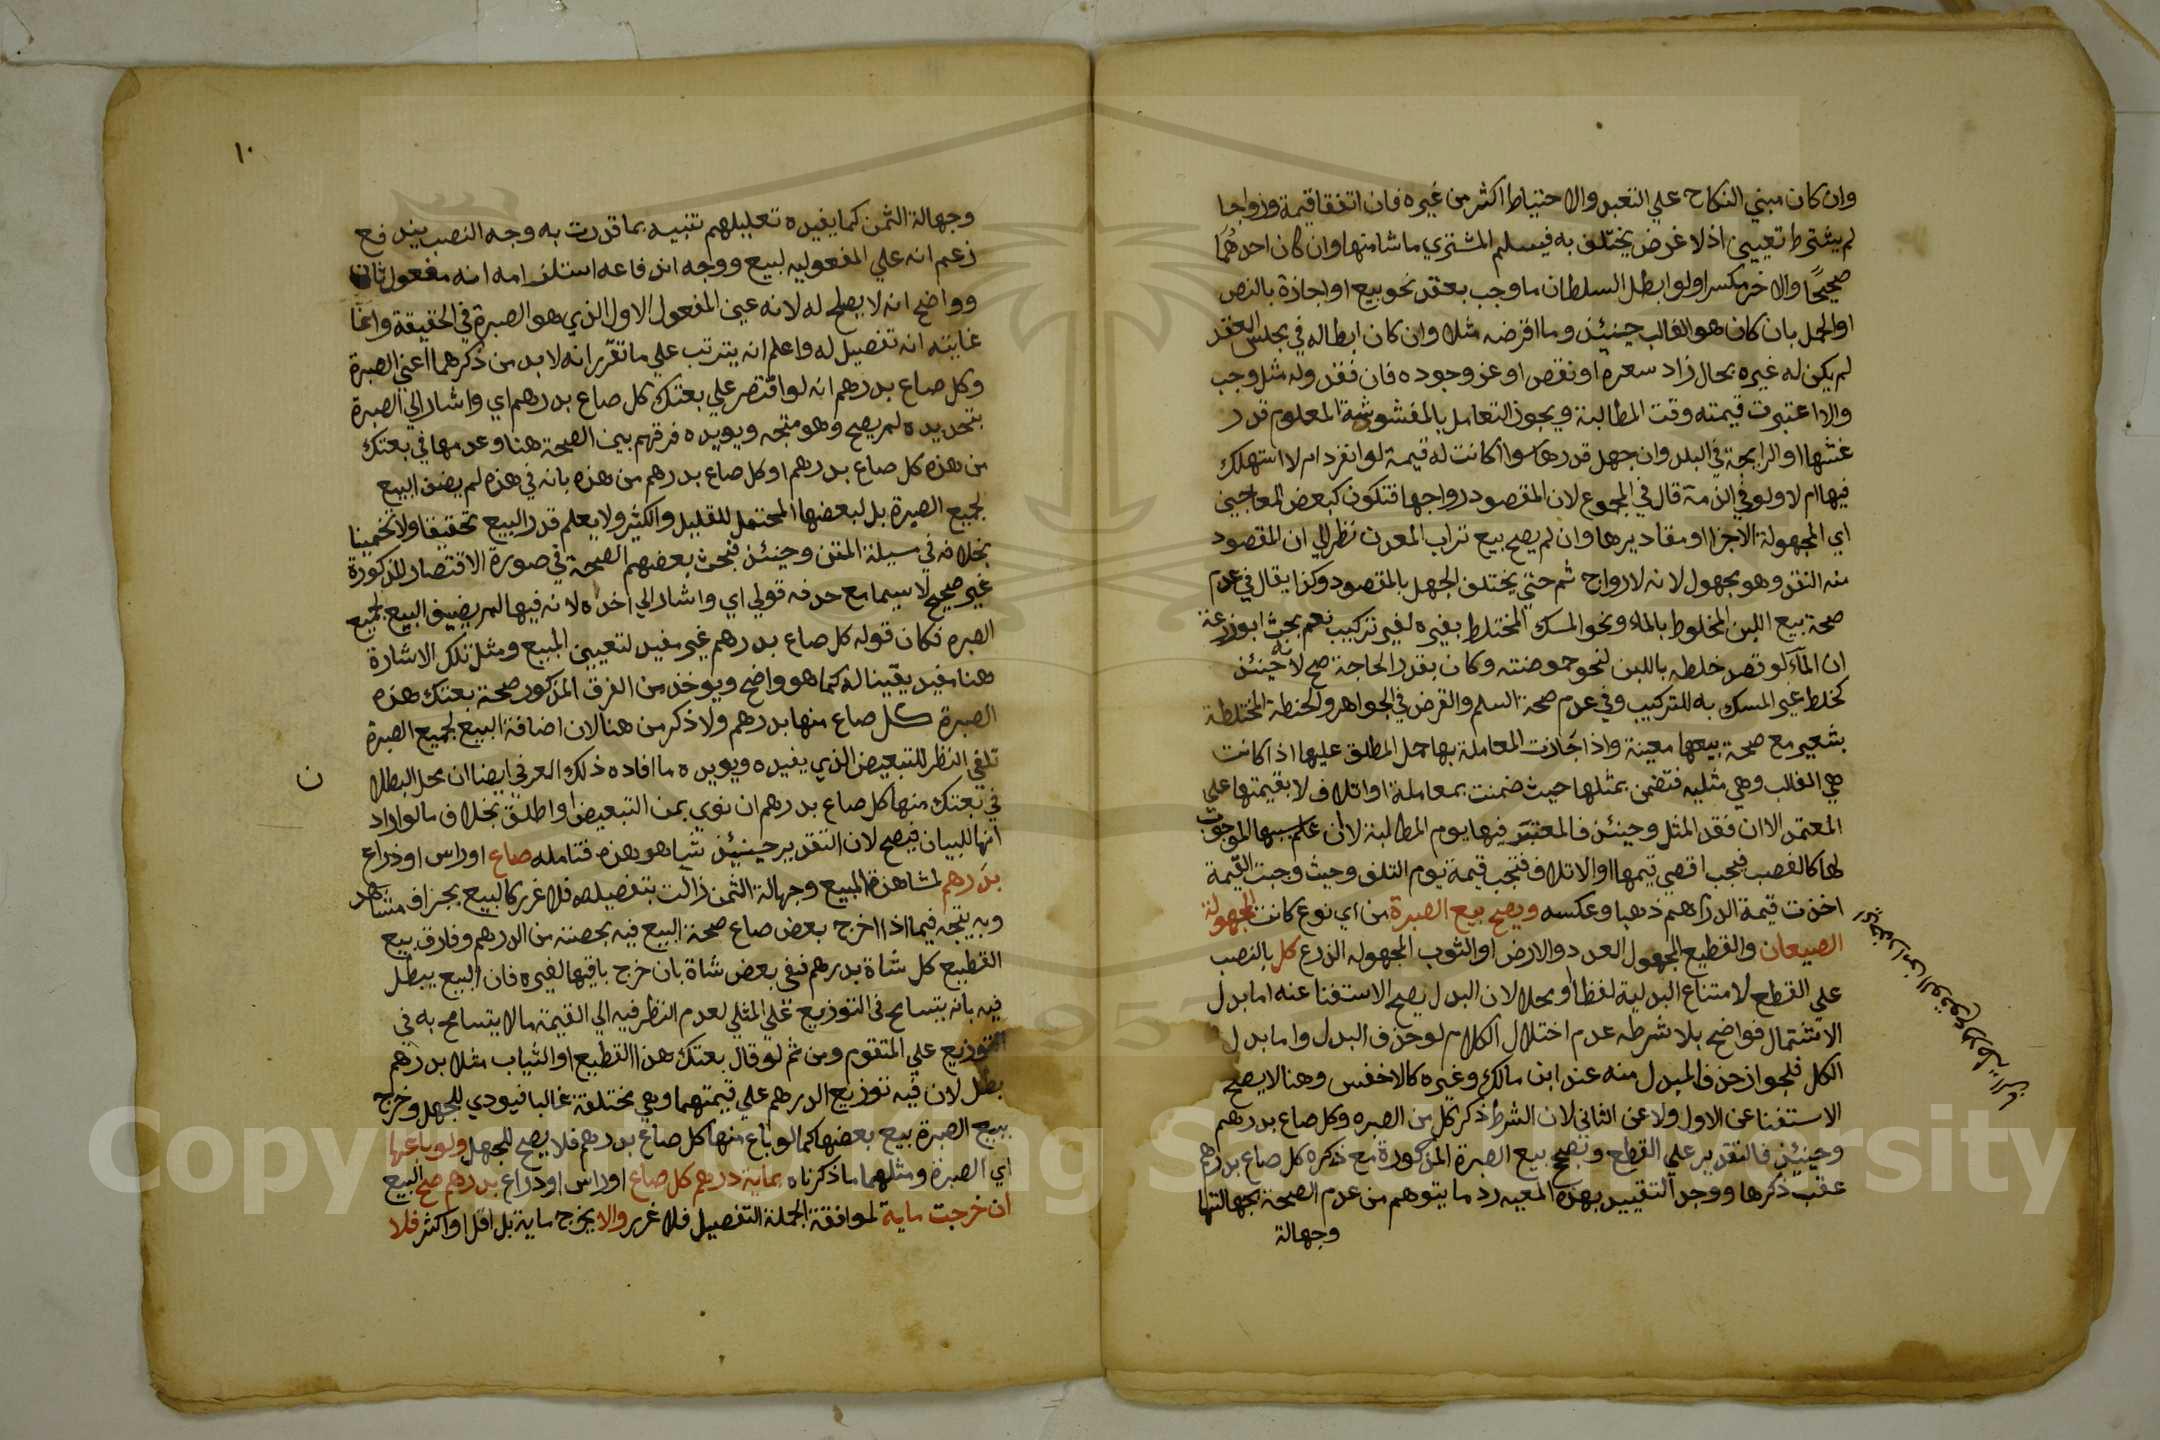 وان كان مبني النكاح علي التعبد والاحتياط اكثر من غيره فان اتفقا قيمة ورواجا
لم يشترط تعيين اذ لا غرض يختلف به فيسلم المشتري ما شا منها وان كان احدهما
صحيحًا والاخر مكسرا ولو ابطل السلطان ما وجب بعقد نحو بيع او اجازة بالنص
او الحمل بان كان هو الغالب حينئذ وما اقرضه مثلا وان كان ابطاله في مجلس العقد
لم يكن له غيره بحال زاد سعره او نقص او عز وجوده فان فقد وله مثل وجب
والا اعتبرت قيمته وقت المطالبة ويجوز التعامل بالمغشوشة المعلوم قدر
غشها او الرايجة في البلد وان جهل قدرها سوا اكانت له قيمة لو انفرد ام لا استهلك
فيها ام لا ولو في الذمة قال في المجموع لان المقصود رواجها فتكون كبعض المعاجين
اي المجهولة الاجزا او مقاديرها وان لم يصح بيع تراب المعدن نظرا الي ان المقصود
منه النقد وهو مجهول لانه لا رواج ثم حتي يختلف الجهل بالمقصود وكذا يقال في عدم
صحة بيع اللبن المخلوط بالماء ونحو المسك المختلط بغيره لغير تركيب نعم بحث ابو زرعة
ان المآء لو قصد خلطه باللبن لنحو حموضته وكان بقدر الحاجة صح لانه حينئذ
كخلط غير المسك به للتركيب وفي عدم صحة السلم والقرض في الجواهر والحنطة المختلطة
بشعير مع صحة بيعها معينة واذا جازت المعاملة بها حمل المطلق عليها اذا كانت
هي الغالب وهي مثليه فتضمن بمثلها حيث ضمنت بمعاملة او اتلاف لا بقيمتها علي
المعتمد الا ان فقد المثل وحينئذ فالمعتبر فيها يوم المطالبة لا ان علم سببها الموجوب
لها كالغصب فيجب اقصي قيمها او الاتلاف فتجب قيمة يوم التلف وحيث وجبت القيمة
اخذت قيمة الدراهم ذهبا وعكسه ويصح بيع الصبرة من اي نوع كانت المجهولة
الصيعان والقطيع المجهول العدد والارض او الثوب المجهوله الذرع كل بالنصب
علي القطع لامتناع البدلية لفظا ومحلا لان البدل يصح الاستغنا عنه اما بدل
الاشتمال فواضح بلا شرطه عدم اختلال الكلام لو حذف البدل واما بدل
الكل فلجواز حذف المبدل منه عند ابن مالك وغيره كالاخفش وهنا لا يصح
الاستغنا عن الاول ولا عن الثاني لان الشرط ذكر كل من الصبره وكل صاع بدرهم
وحينئذ فالتقدير علي القطع ويصح بيع الصبرة المذكورة مع ذكره كل صاع بدرهم
عقب ذكرها ووجه التقييد بهذه المعيه رد ما يتوهم من عدم الصحة لجهالتها
وجهالة
١٠
وجهالة الثمن كما يفيده تعليلهم تنبيه بما قدرت به وجه النصب يندفع
زعم انه علي المفعوليه لبيع ووجه اندفاعه استلزامه انه مفعول ثان
وواضح انه لا يصلح له لانه عين المفعول الاول الذي هو الصبرة في الحقيقة وانما
غايته انه تفصيل له واعلم انه يترتب علي ما تقرر انه لا بد من ذكرهما اعني الصبرة
وكل صاع بدرهم انه لو اقتصر علي بعتك كل صاع بدرهم اي واشار الي الصبرة
بتحديده لم يصح وهو متجه ويويده فرقهم بين الصحة هنا وعدمها في بعتك
من هذه كل صاع بدرهم او كل صاع بدرهم من هذه بانه في هذه لم يضف البيع
لجميع الصبرة بل لبعضها المحتمل للقليل والكثير ولا يعلم قدر البيع تحقيقا ولا تخمينا
بخلافه في مسيلة المتن وحينئذ فبحث بعضهم الصحة في صورة الاقتصار المذكورة
غير صحيح لا سيما مع حدفه قولي اي واشار الي اخره لانه فيها لم يضيف البيع لجميع
الصبره فكان قوله كل صاع بدرهم غير مفيد لتعيين المبيع ومثل تلك الاشارة
هنا مفيد يقينا له كما هو واضح ويوخذ من الفرق المذكور صحة بعتك هذه
الصبرة كل صاع منها بدرهم ولا ذكر من هنا لان اضافة البيع لجميع الصبرة
تلغي النظر للتبعيض الذي يفيده ويويده ما افاده ذلك العرفي ايضا ان محل البطلا
ن
في بعتك منها كل صاع بدرهم ان نوي بمن التبعيض او اطلق بخلاف ما لو اراد
انها للبيان فيصح لان التقدير حينئذ شيا هو هذه فتامله صاع او راس او ذراع
بدرهم لمشاهدة المبيع وجهالة الثمن زالت بتفصيله فلا غرر كالبيع بجزاف مشاهد
وبه يتجه فيما اذا اخرج بعض صاع صحة البيع فيه بحصته من الدرهم وفارق بيع
القطيع كل شاة بدرهم ففي بعض شاة بان خرج باقيها لغيره فان البيع يبطل
فيه بانه يتسامح في التوزيع علي المثلي لعدم النظر فيه الي القيمة ما لا يتسامح به في
التوزيع علي المتقوم ومن ثم لو قال بعتك هذا القطيع او الثياب مثلا بدرهم
بطل لان فيه توزيع الدرهم علي قيمتهما وهي مختلفة غالبا فيودي للجهل وخرج
ببيع الصبرة بيع بعضها كما لو باع منها كل صاع بدرهم فلا يصح للجهل ولو باعها
اي الصبرة ومثلهما ما ذكرناه بماية درهم كل صاع او راس او ذراع بدرهم صح البيع
ان خرجت ماية لموافقة الجملة التفصيل فلا غرر والا يخرج ماية بل اقل او اكثر فلا